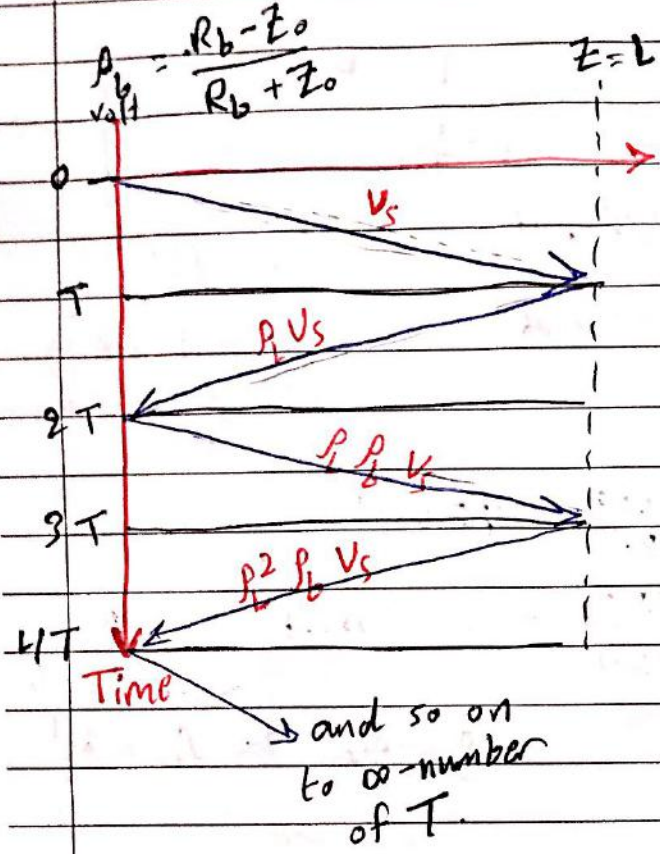 ρ_b = (R_b - Z_0) / (R_b + Z_0)
volt
Z = L
0
V_s
T
ρ_L V_s
2T
ρ_L ρ_b V_s
3T
ρ_L² ρ_b V_s
4T
Time
and so on
to ∞-number
of T.